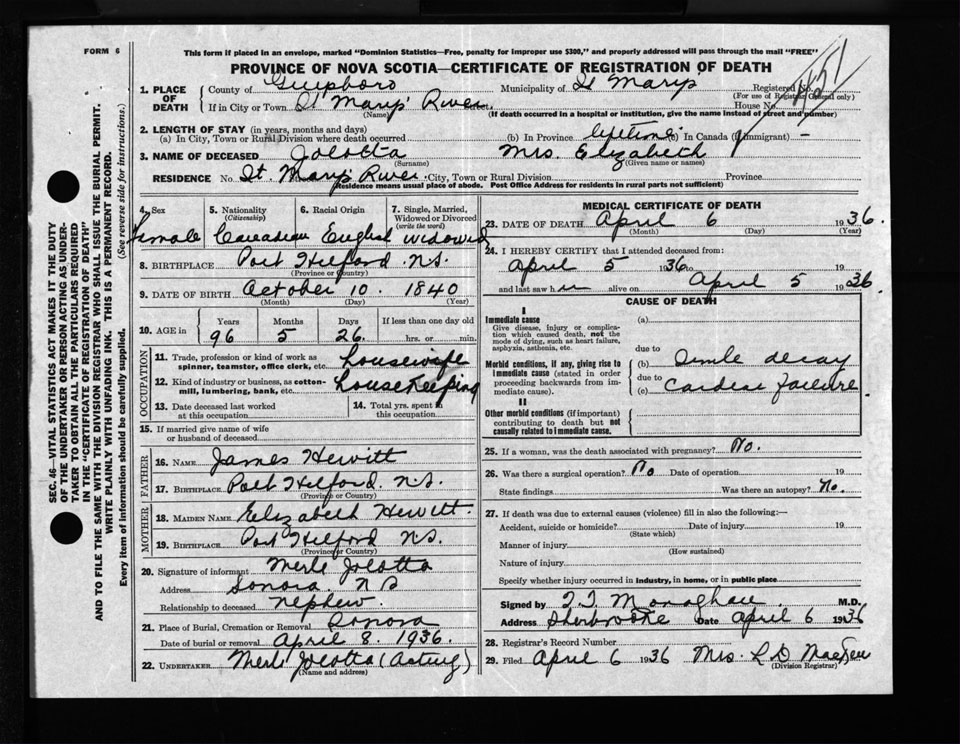 FORM 6
This form if placed in an envelope, marked "Dominion Statistics—Free, penalty for improper use $300," and properly addressed will pass through the mail "FREE"
PROVINCE OF NOVA SCOTIA—CERTIFICATE OF REGISTRATION OF DEATH
1. PLACE OF DEATH
County of Guysboro Municipality of St Marys Registered No.
(For use of Registrar General only)
If in City or Town St Marys' River House No.
(Name) (If death occurred in a hospital or institution, give the name instead of street and number)
2. LENGTH OF STAY (in years, months and days)
(a) In City, Town or Rural Division where death occurred (b) In Province lifetime (c) In Canada (if immigrant) —
3. NAME OF DECEASED Jolotta Mrs. Elizabeth
(Surname) (Given name or names)
RESIDENCE No. St. Marys River City, Town or Rural Division Province
(Residence means usual place of abode. Post Office Address for residents in rural parts not sufficient)
4. Sex 5. Nationality (Citizenship) 6. Racial Origin 7. Single, Married, Widowed or Divorced (write the word)
Female Canadian English widowed
8. BIRTHPLACE Port Hilford N.S.
(Province or Country)
9. DATE OF BIRTH October 10. 1840
(Month) (Day) (Year)
10. AGE in Years Months Days If less than one day old
96 5 26. hrs. or min.
OCCUPATION
11. Trade, profession or kind of work as spinner, teamster, office clerk, etc. housewife
12. Kind of industry or business, as cotton-mill, lumbering, bank, etc. housekeeping
13. Date deceased last worked at this occupation 14. Total yrs. spent in this occupation
15. If married give name of wife or husband of deceased
FATHER
16. NAME James Hewitt
17. BIRTHPLACE Port Hilford. N.S.
(Province or Country)
MOTHER
18. MAIDEN NAME Elizabeth Hewitt.
19. BIRTHPLACE Port Hilford N.S.
(Province or Country)
20. Signature of informant Merle Jolotta
Address Sonora. N S
Relationship to deceased nephew.
21. Place of Burial, Cremation or Removal Sonora
Date of burial or removal April 8. 1936.
22. UNDERTAKER Merle Jolotta (Acting)
(Name and address)
MEDICAL CERTIFICATE OF DEATH
23. DATE OF DEATH April 6 1936.
(Month) (Day) (Year)
24. I HEREBY CERTIFY that I attended deceased from:
April 5 1936 to 19
and last saw h er alive on April 5 1936.
CAUSE OF DEATH
I
Immediate cause (a)
Give disease, injury or complication which caused death, not the mode of dying, such as heart failure, asphyxia, asthenia, etc.
due to
Morbid conditions, if any, giving rise to immediate cause (stated in order proceeding backwards from immediate cause).
(b) Senile decay
due to
(c) Cardiac failure
II
Other morbid conditions (if important) contributing to death but not causally related to immediate cause.
25. If a woman, was the death associated with pregnancy? No.
26. Was there a surgical operation? No Date of operation 19
State findings Was there an autopsy? No.
27. If death was due to external causes (violence) fill in also the following:—
Accident, suicide or homicide? Date of injury 19
(State which)
Manner of injury
(How sustained)
Nature of injury
Specify whether injury occurred in industry, in home, or in public place
Signed by Monaghan M.D.
Address Sherbrooke Date April 6 1936
28. Registrar's Record Number
29. Filed April 6 1936 Mrs. L D
(Division Registrar)
SEC. 46—VITAL STATISTICS ACT MAKES IT THE DUTY OF THE UNDERTAKER OR PERSON ACTING AS UNDERTAKER TO OBTAIN ALL THE PARTICULARS REQUIRED IN THE "CERTIFICATE OF REGISTRATION OF DEATH" AND TO FILE THE SAME WITH THE DIVISION REGISTRAR WHO SHALL ISSUE THE BURIAL PERMIT.
WRITE PLAINLY WITH UNFADING INK. THIS IS A PERMANENT RECORD.
Every item of information should be carefully supplied. (See reverse side for instructions.)